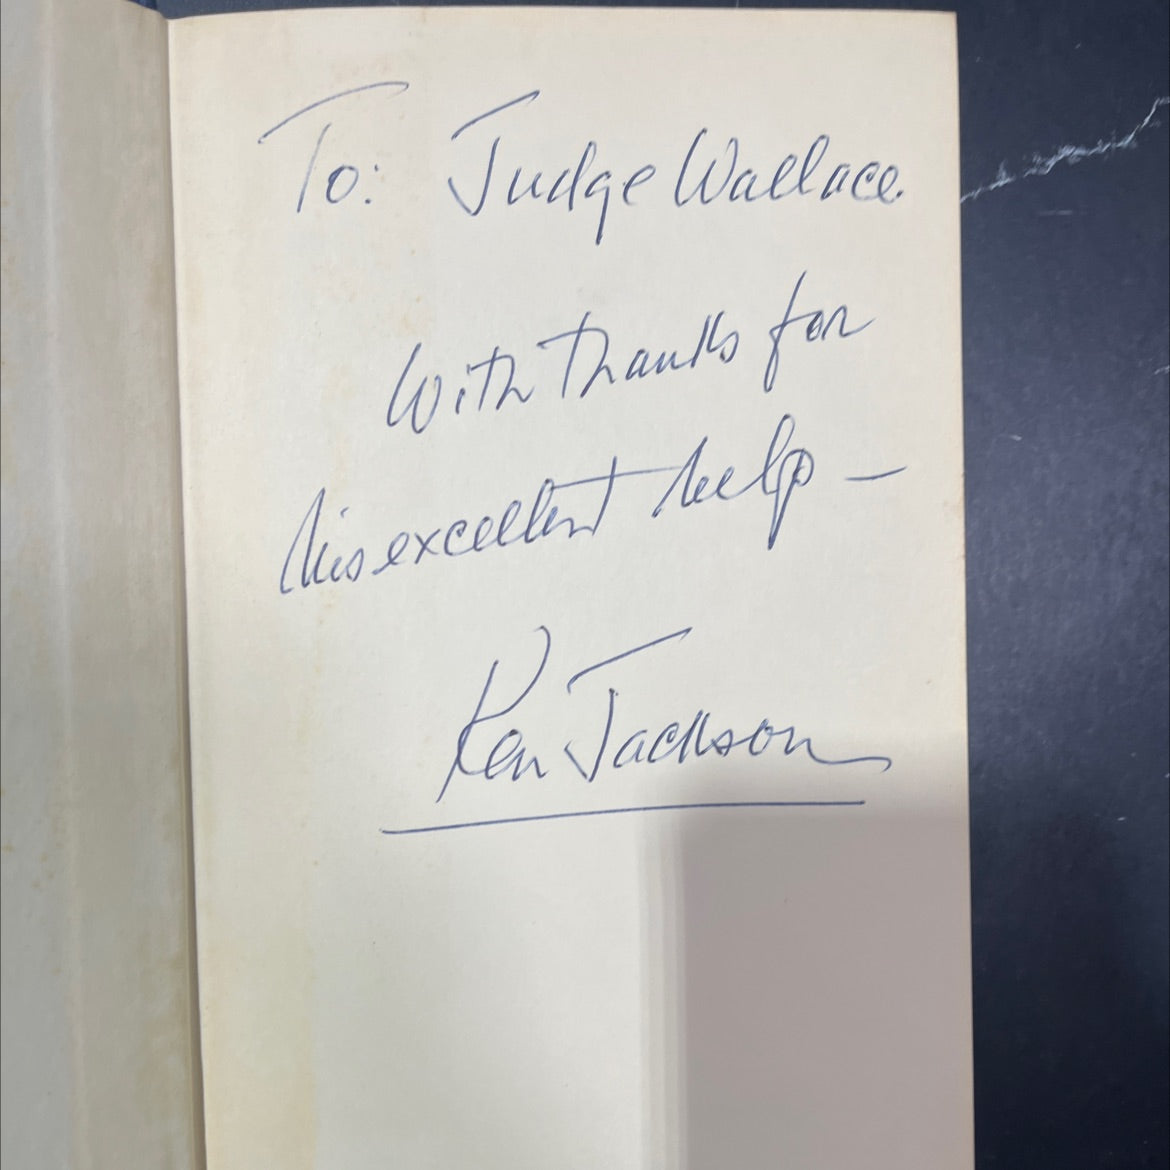 To: Judge Wallace.
With thanks for
his excellent help —
Ken Jackson